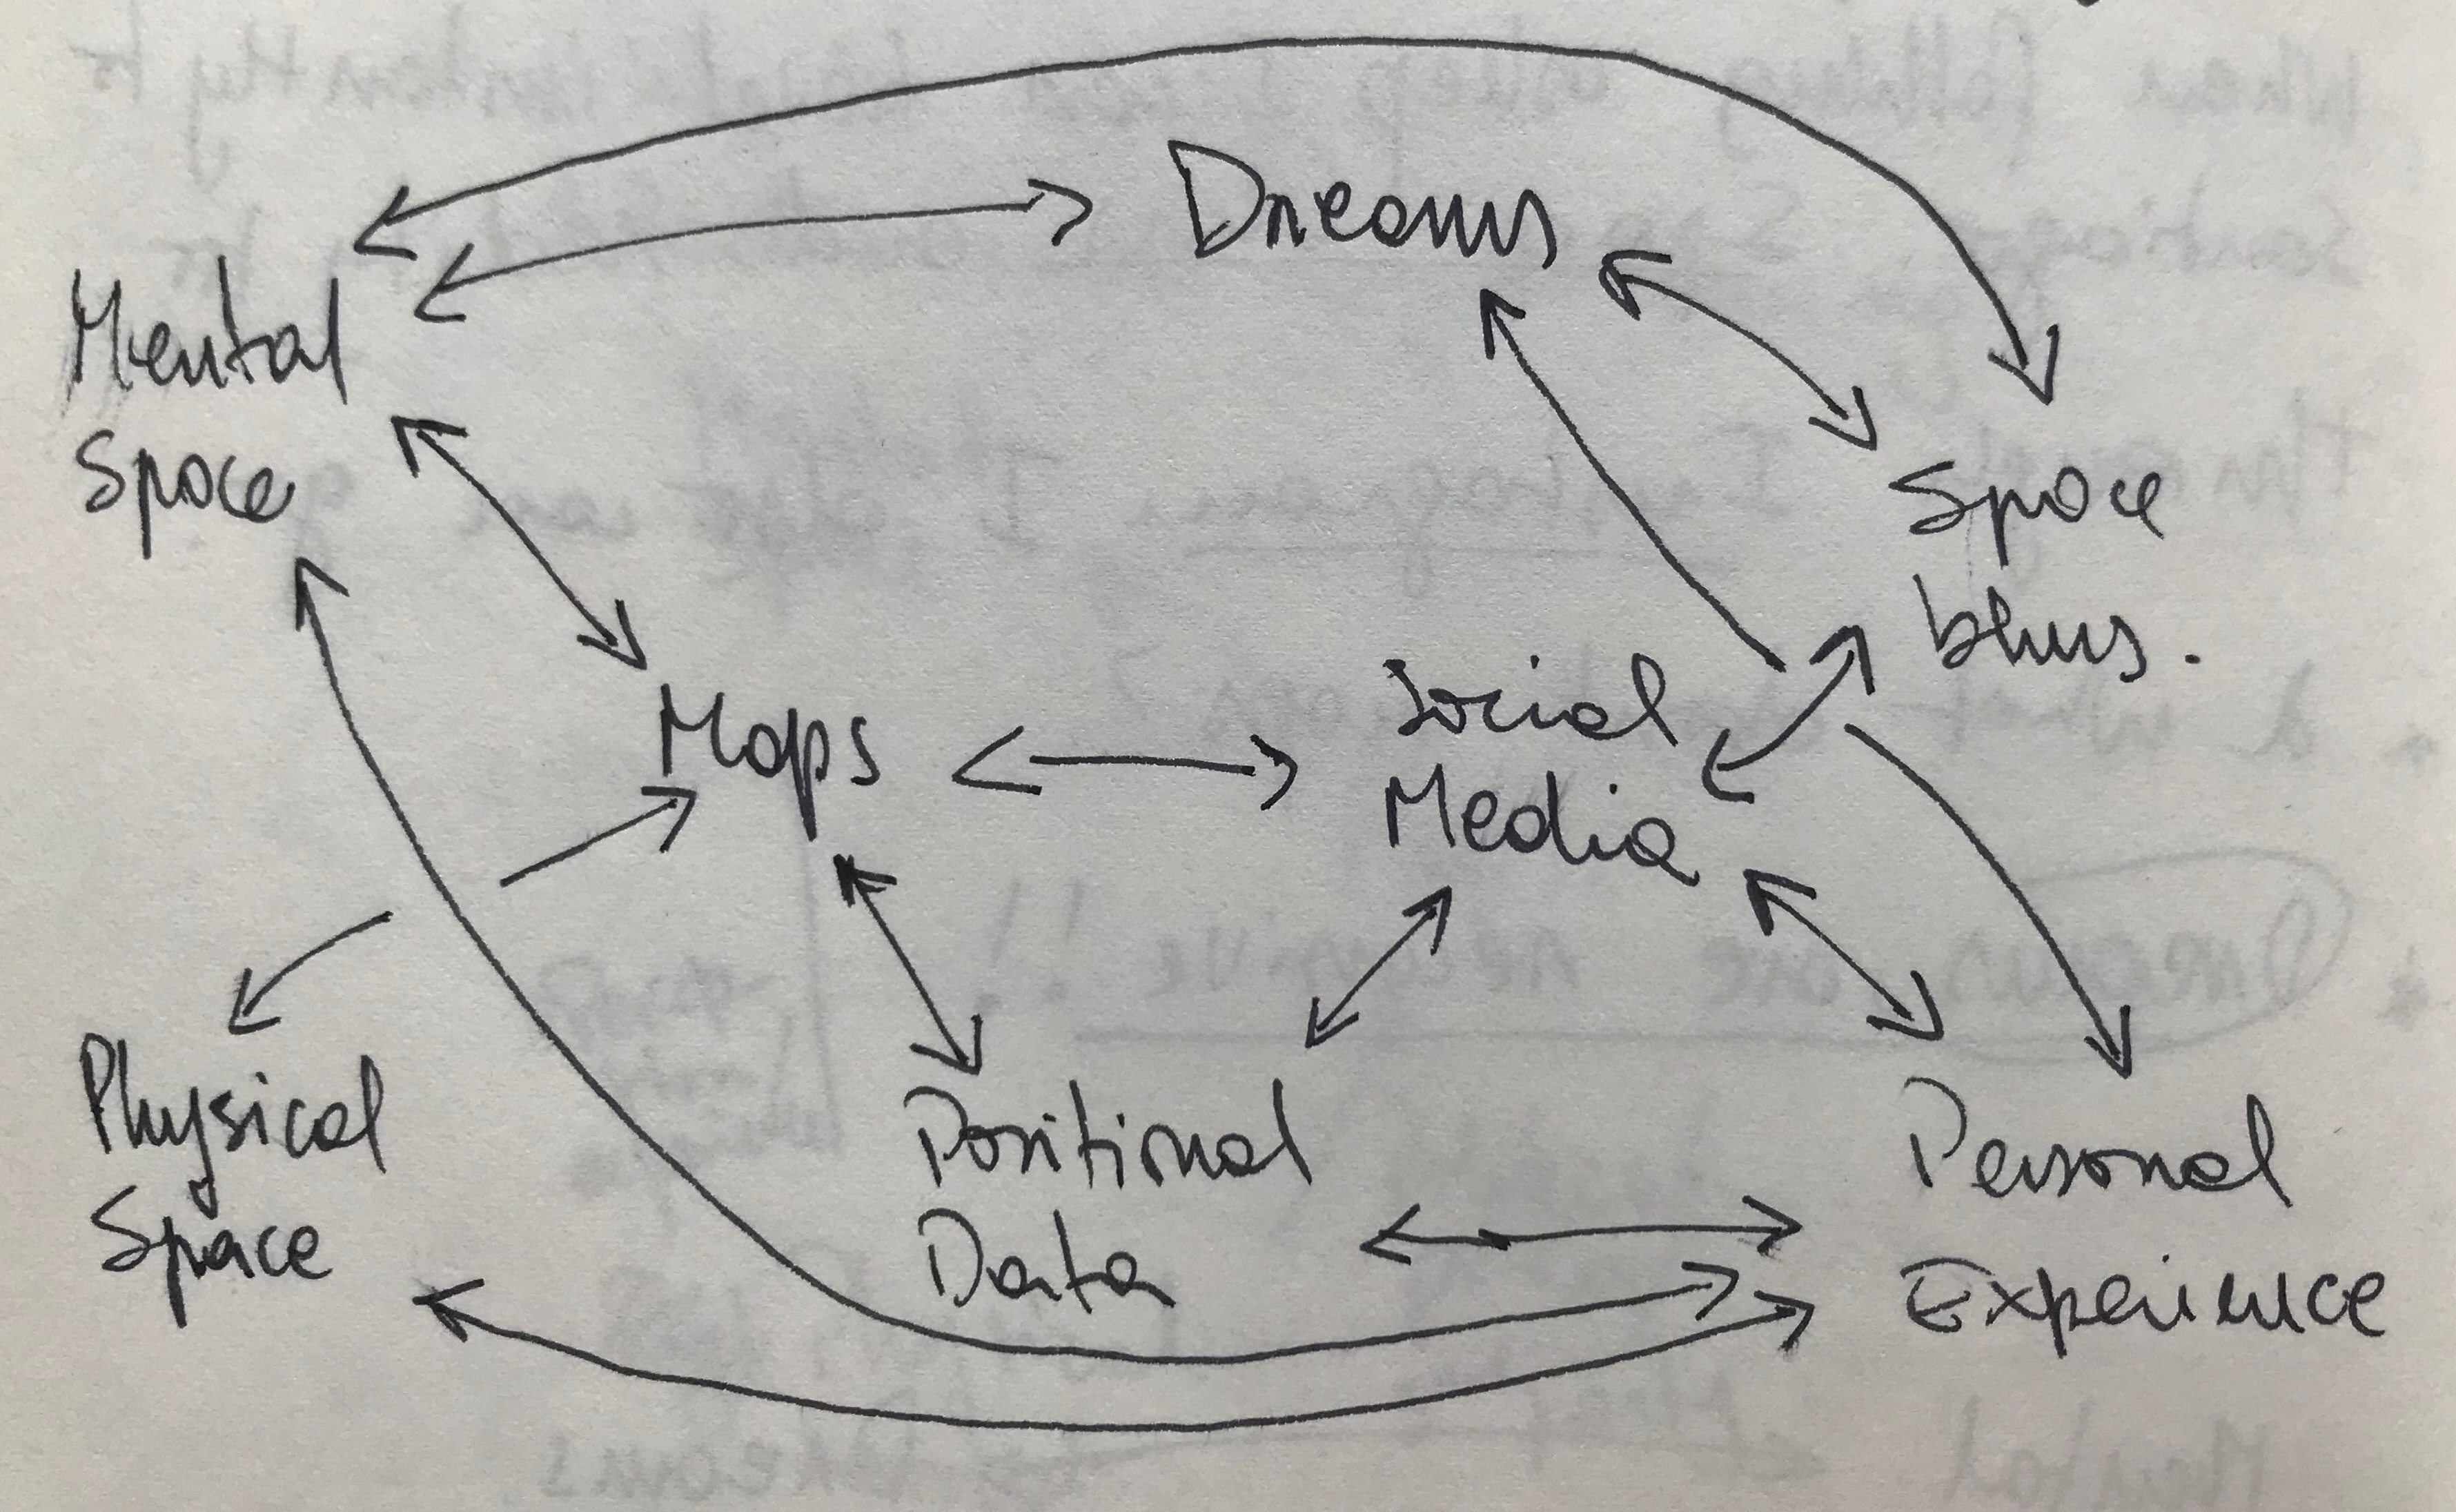 Dreams
Mental
Space
Space
blurs.
Maps
Social
Media
Physical
Space
Positional
Data
Personal
Experience